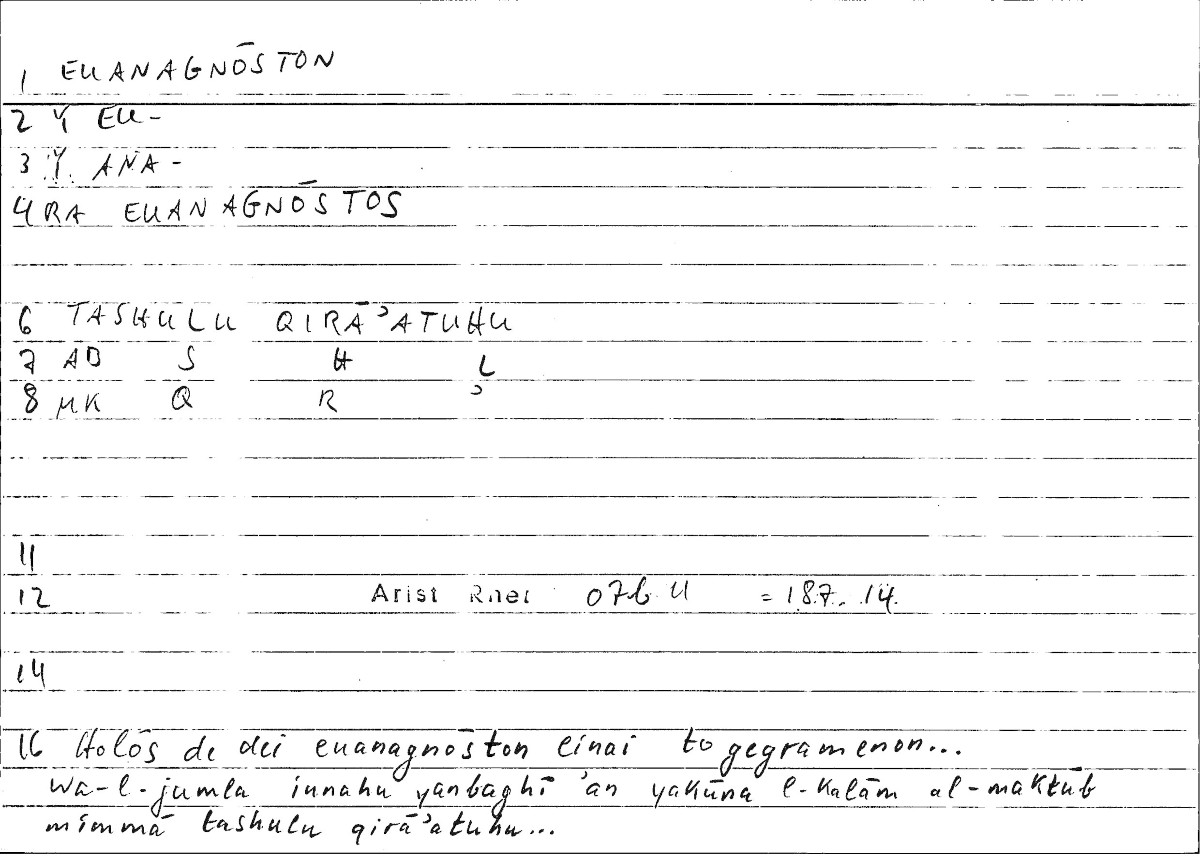 1 EUANAGNŌSTON
2 Y EU-
3 Y. ANA-
4 RA EUANAGNŌSTOS
6 TASHULU QIRĀʾATUHU
7 AB S H L
8 MK Q R ʾ
11
12 Arist Rhet 07b 11 = 187. 14.
14
16 Holōs de dei euanagnōston einai to gegramenon...
wa-l-jumla innahu yanbaghī ʾan yakūna l-kalām al-maktūb
mimmā tashulu qirāʾatuhu...